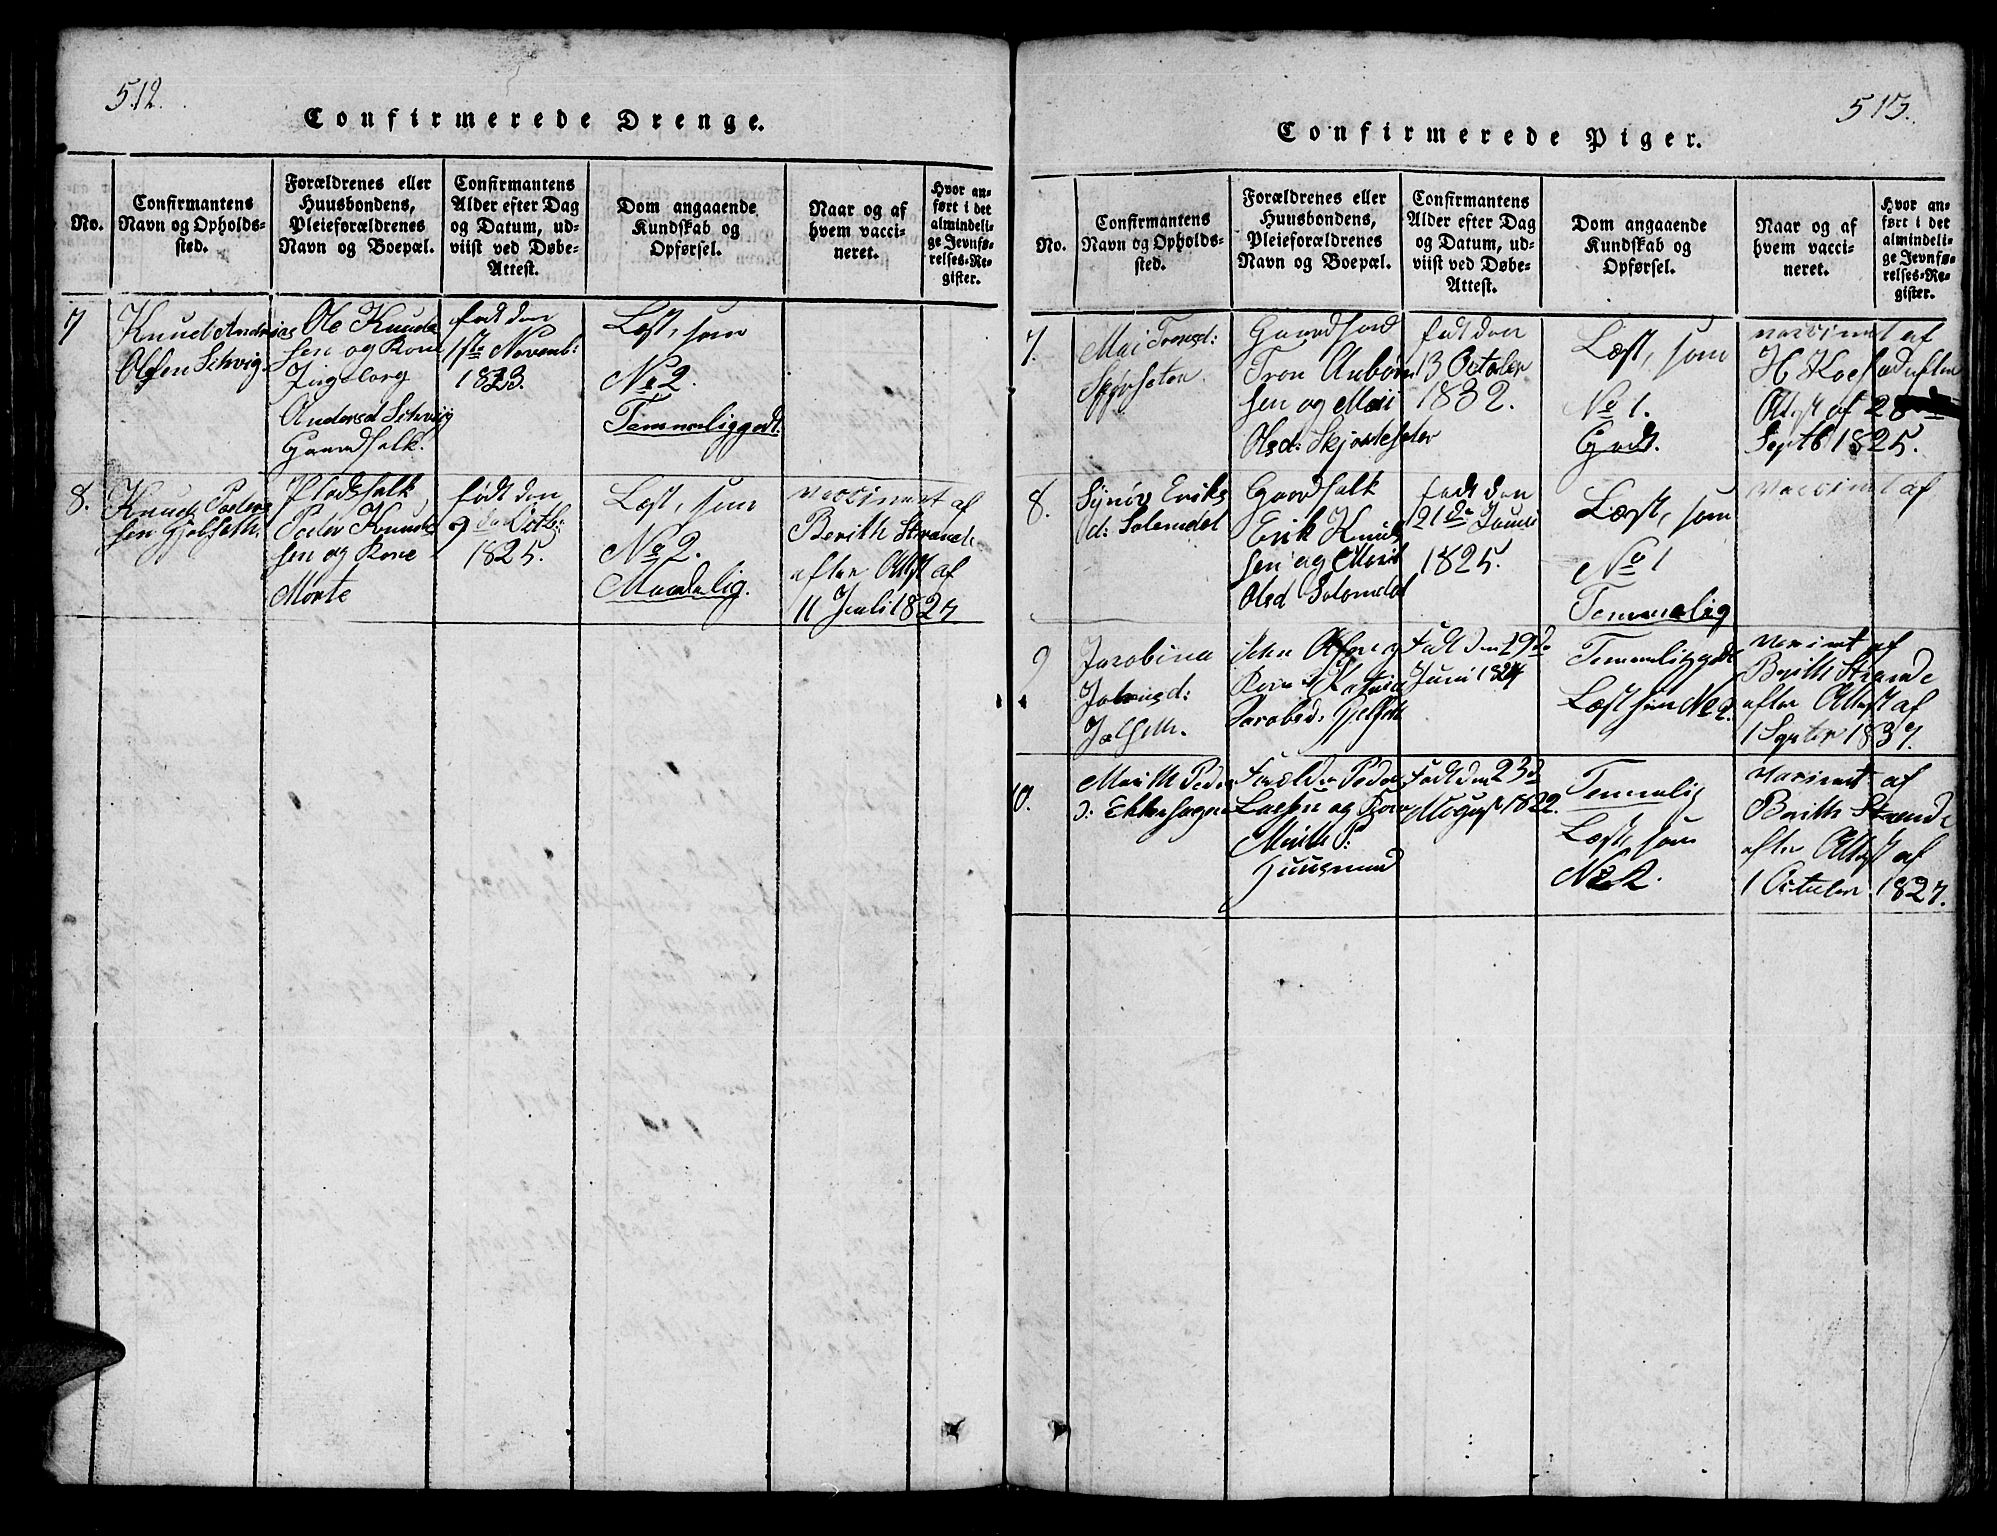 512.
Confirmerede Drenge.
No.
Confirmantens
Navn og Opholds-
sted.
Forældrenes eller
Huusbondens,
Pleieforældrenes
Navn og Boepæl.
Confirmantens
Alder efter Dag
og Datum, ud-
viist ved Døbe-
Attest.
Dom angaaende
Kundskab og
Opførsel.
Naar og af
hvem vacci-
neret.
Hvor an-
ført i det
almindeli-
ge Jevnfø-
relses-Re-
gister.
7
Knud Andreas
Olsen
Ole Knud-
sen og Kone
Ingeborg
Andersd
Gaardfolk.
født den
1ste Novemb:
1823.
Læst, som
No 2.
Temmeliggodt.
8.
Knud Peder-
sen Gjelseth.
Pladsfolk
Peder Knud-
sen og Kone
Marte
født den
9 Octb:
1825.
Læst, som
No 2.
Maadelig.
vaccineret af
Berith Strande
efter Attest af
11 Juli 1827
513.
Confirmerede Piger.
No.
Confirmantens
Navn og Opholds-
sted.
Forældrenes eller
Huusbondens,
Pleieforældrenes
Navn og Boepæl.
Confirmantens
Alder efter Dag
og Datum, ud-
viist ved Døbe-
Attest.
Dom angaaende
Kundskab og
Opførsel.
Naar og af
hvem vacci-
neret.
Hvor an-
ført i det
almindeli-
ge Jevnfø-
relses-Re-
gister.
7.
Mari Tronsd:
Gaardfolk
Tron
sen og Mari
Olsd:
født den
13 October
1832.
Læst, som
No 1.
Godt.
vaccineret af
H. Koch
Attest af 28
Septb 1825.
8.
Synøv Eriks
d: Solemdal
Gaardfolk
Erik Knud-
sen og Marit
Olsd Solemdal
født den
21de Juni
1825.
Læst, som
No 1
Temmelig
vaccineret af
9
Jacobina
Johnsd:
John Olsen og
Kone
Jacobsd: Gjelseth
Født den 29de
Juni 1824
Temmeliggodt
Læst som No 2.
vaccineret af
Berith Strande
efter Attest af
1 Septer 1837.
10.
Marith Peders
d:
Forældre Peder
Larsen og Kone
Marith P:
Huusmand
Født den 23d
August 1822.
Temmelig
Læst, som
No 2.
vaccineret af
Berith Strande
efter Attest af
1 October 1827.